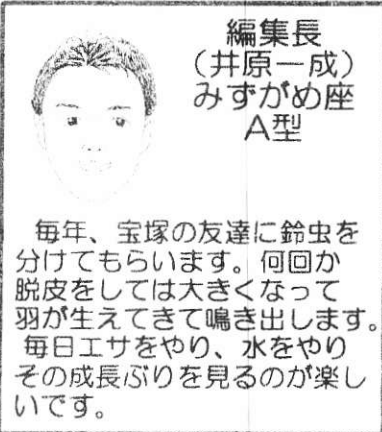 編集長
（井原一成）
みずがめ座
A型
毎年、宝塚の友達に鈴虫を
分けてもらいます。何回か
脱皮をしては大きくなって
羽が生えてきて鳴き出します。
毎日エサをやり、水をやり
その成長ぶりを見るのが楽し
いです。